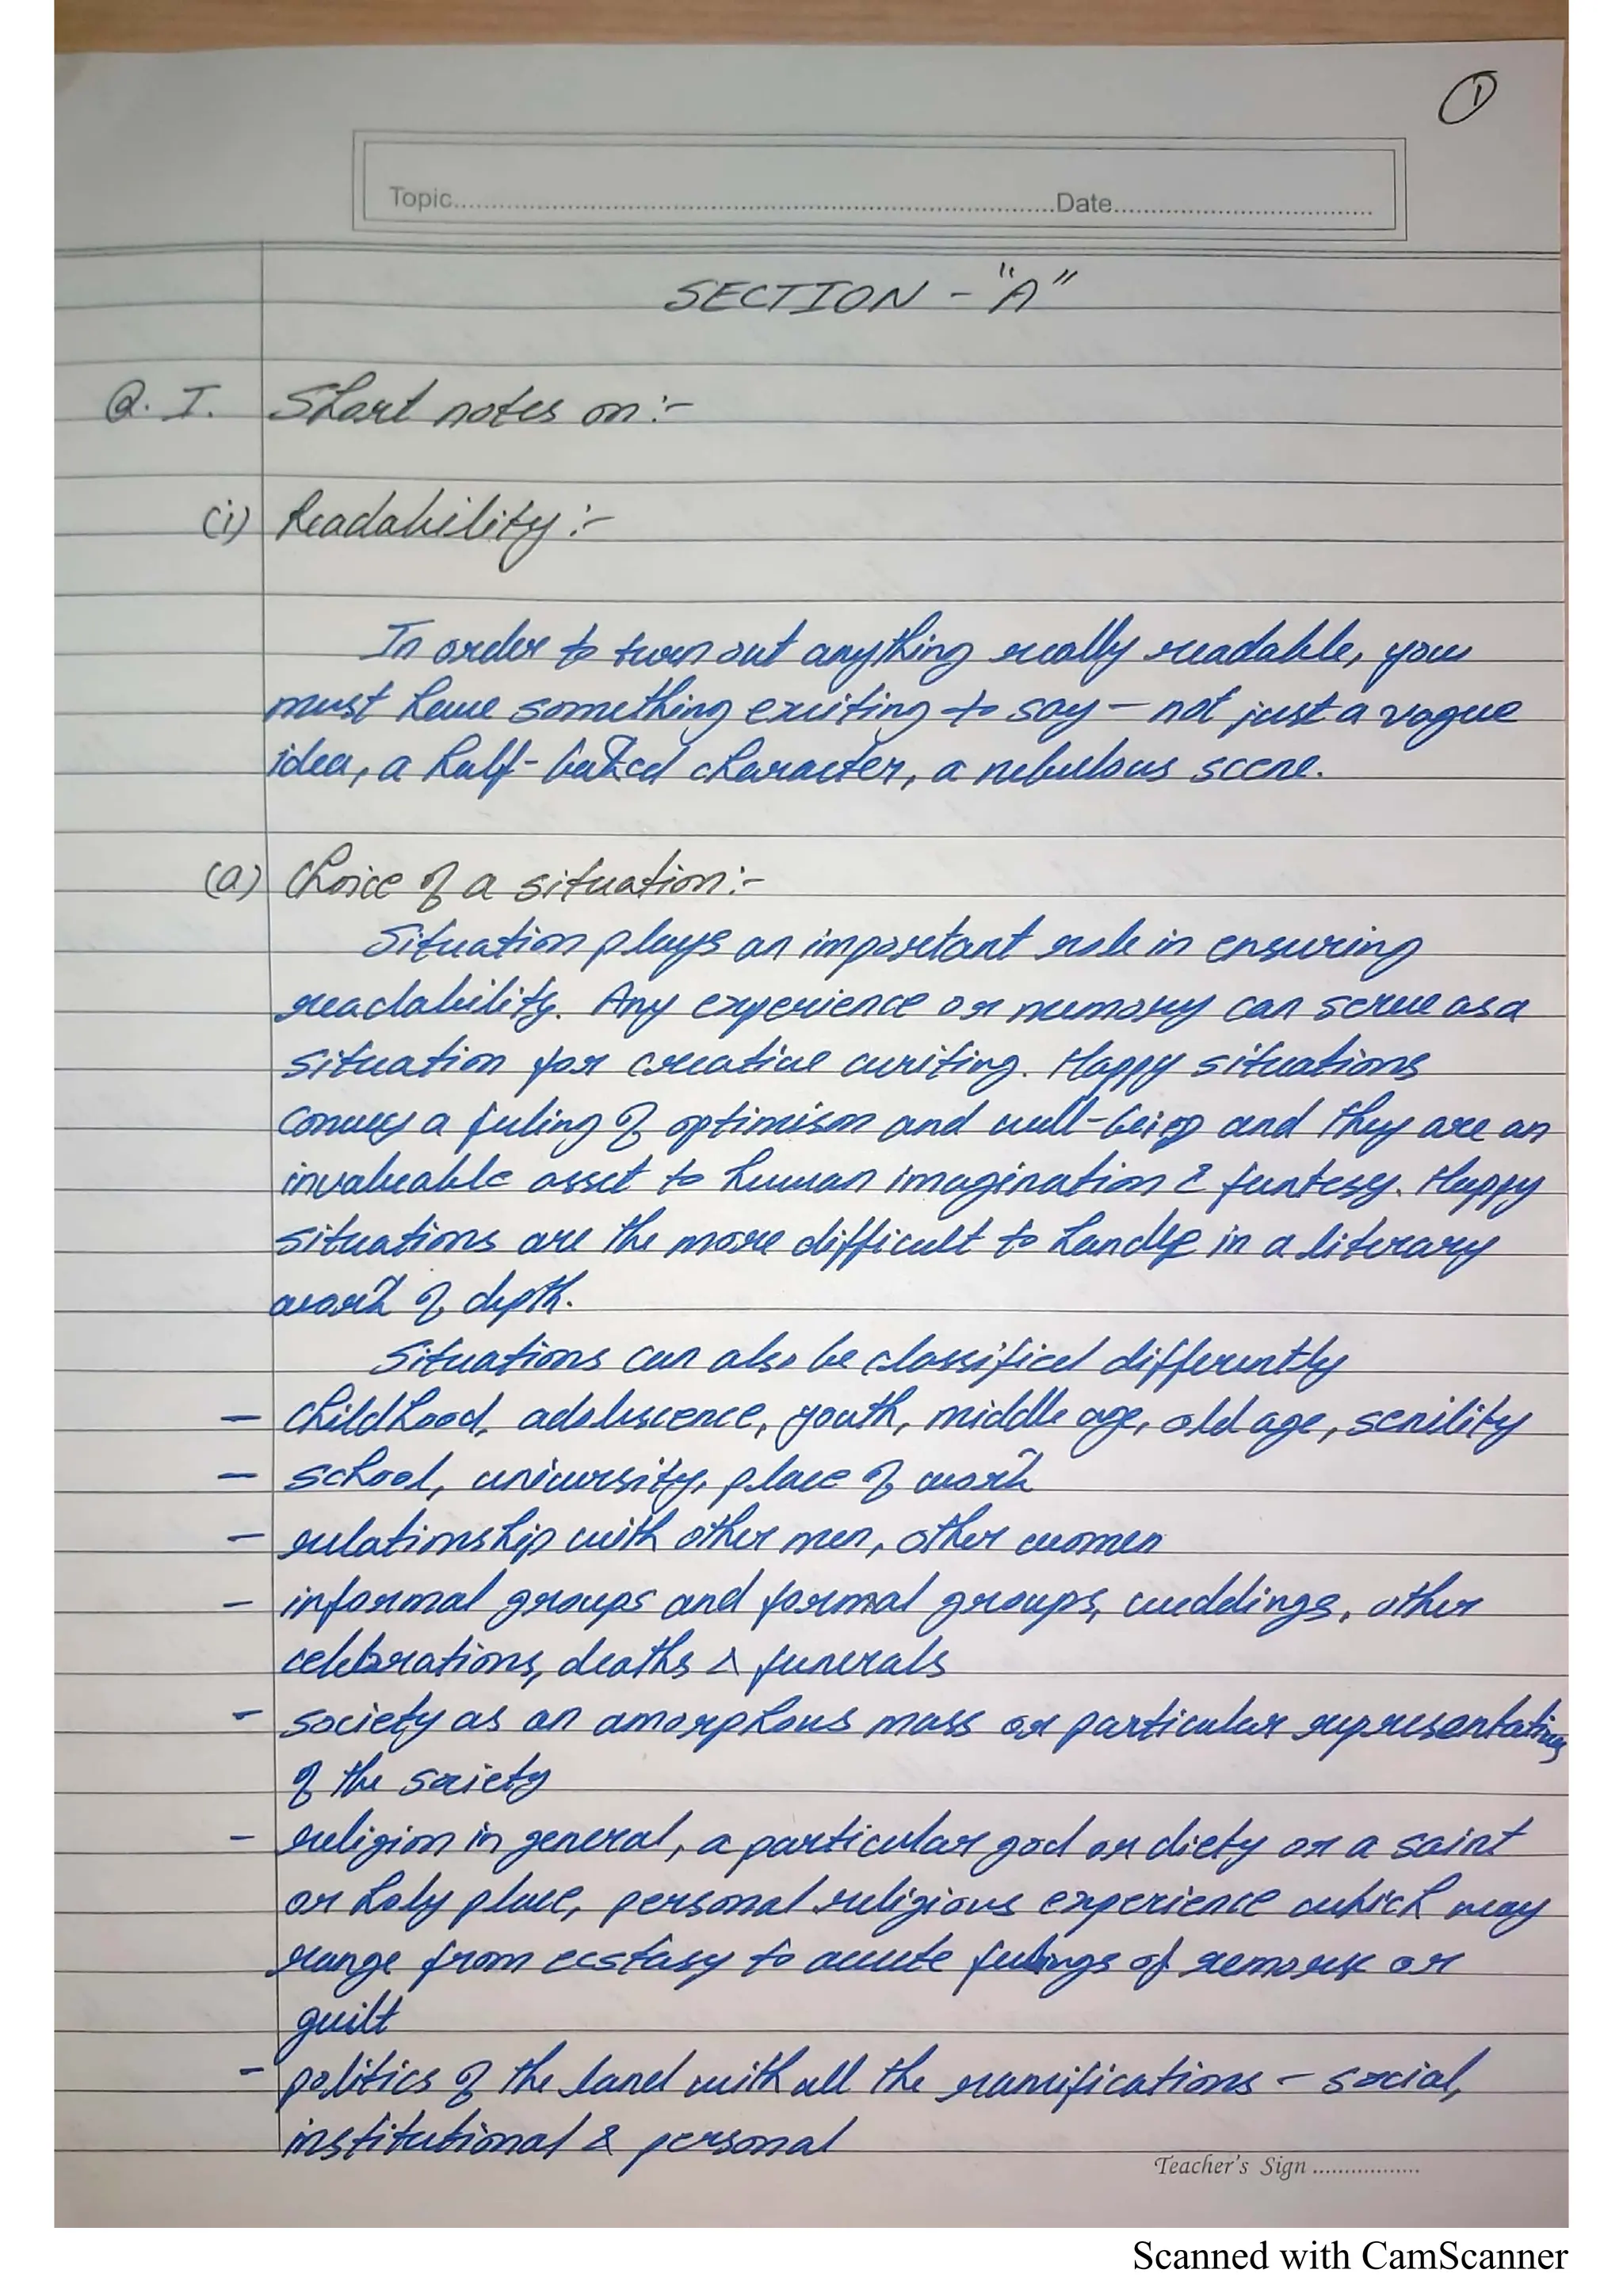 1
Topic.....................Date.....................
SECTION - "A"
Q. I. Short notes on :-
(i) Readability :-
In order to turn out anything really readable, you
must have something exciting to say - not just a vague
idea, a half-baked character, a nebulous scene.
(a) Choice of a situation :-
Situation plays an important role in ensuring
readability. Any experience or memory can serve as a
situation for creative writing. Happy situations
convey a feeling of optimism and well-being and they are an
invalueable asset to human imagination & fantesy. Happy
situations are the more difficult to handle in a literary
work of depth.
Situations can also be classified differently
- childhood, adolescence, youth, middle age, old age, senility
- school, university, place of work
- relationship with other men, other women
- informal groups and formal groups, weddings, other
celebrations, deaths & funerals
- society as an amorphous mass or particular representatives
of the society
- religion in general, a particular god or diety or a saint
or holy place, personal religious experience which may
range from ecstasy to acute feelings of remorse or
guilt
- politics of the land with all the ramifications - social,
institutional & personal
Teacher's Sign .................
Scanned with CamScanner